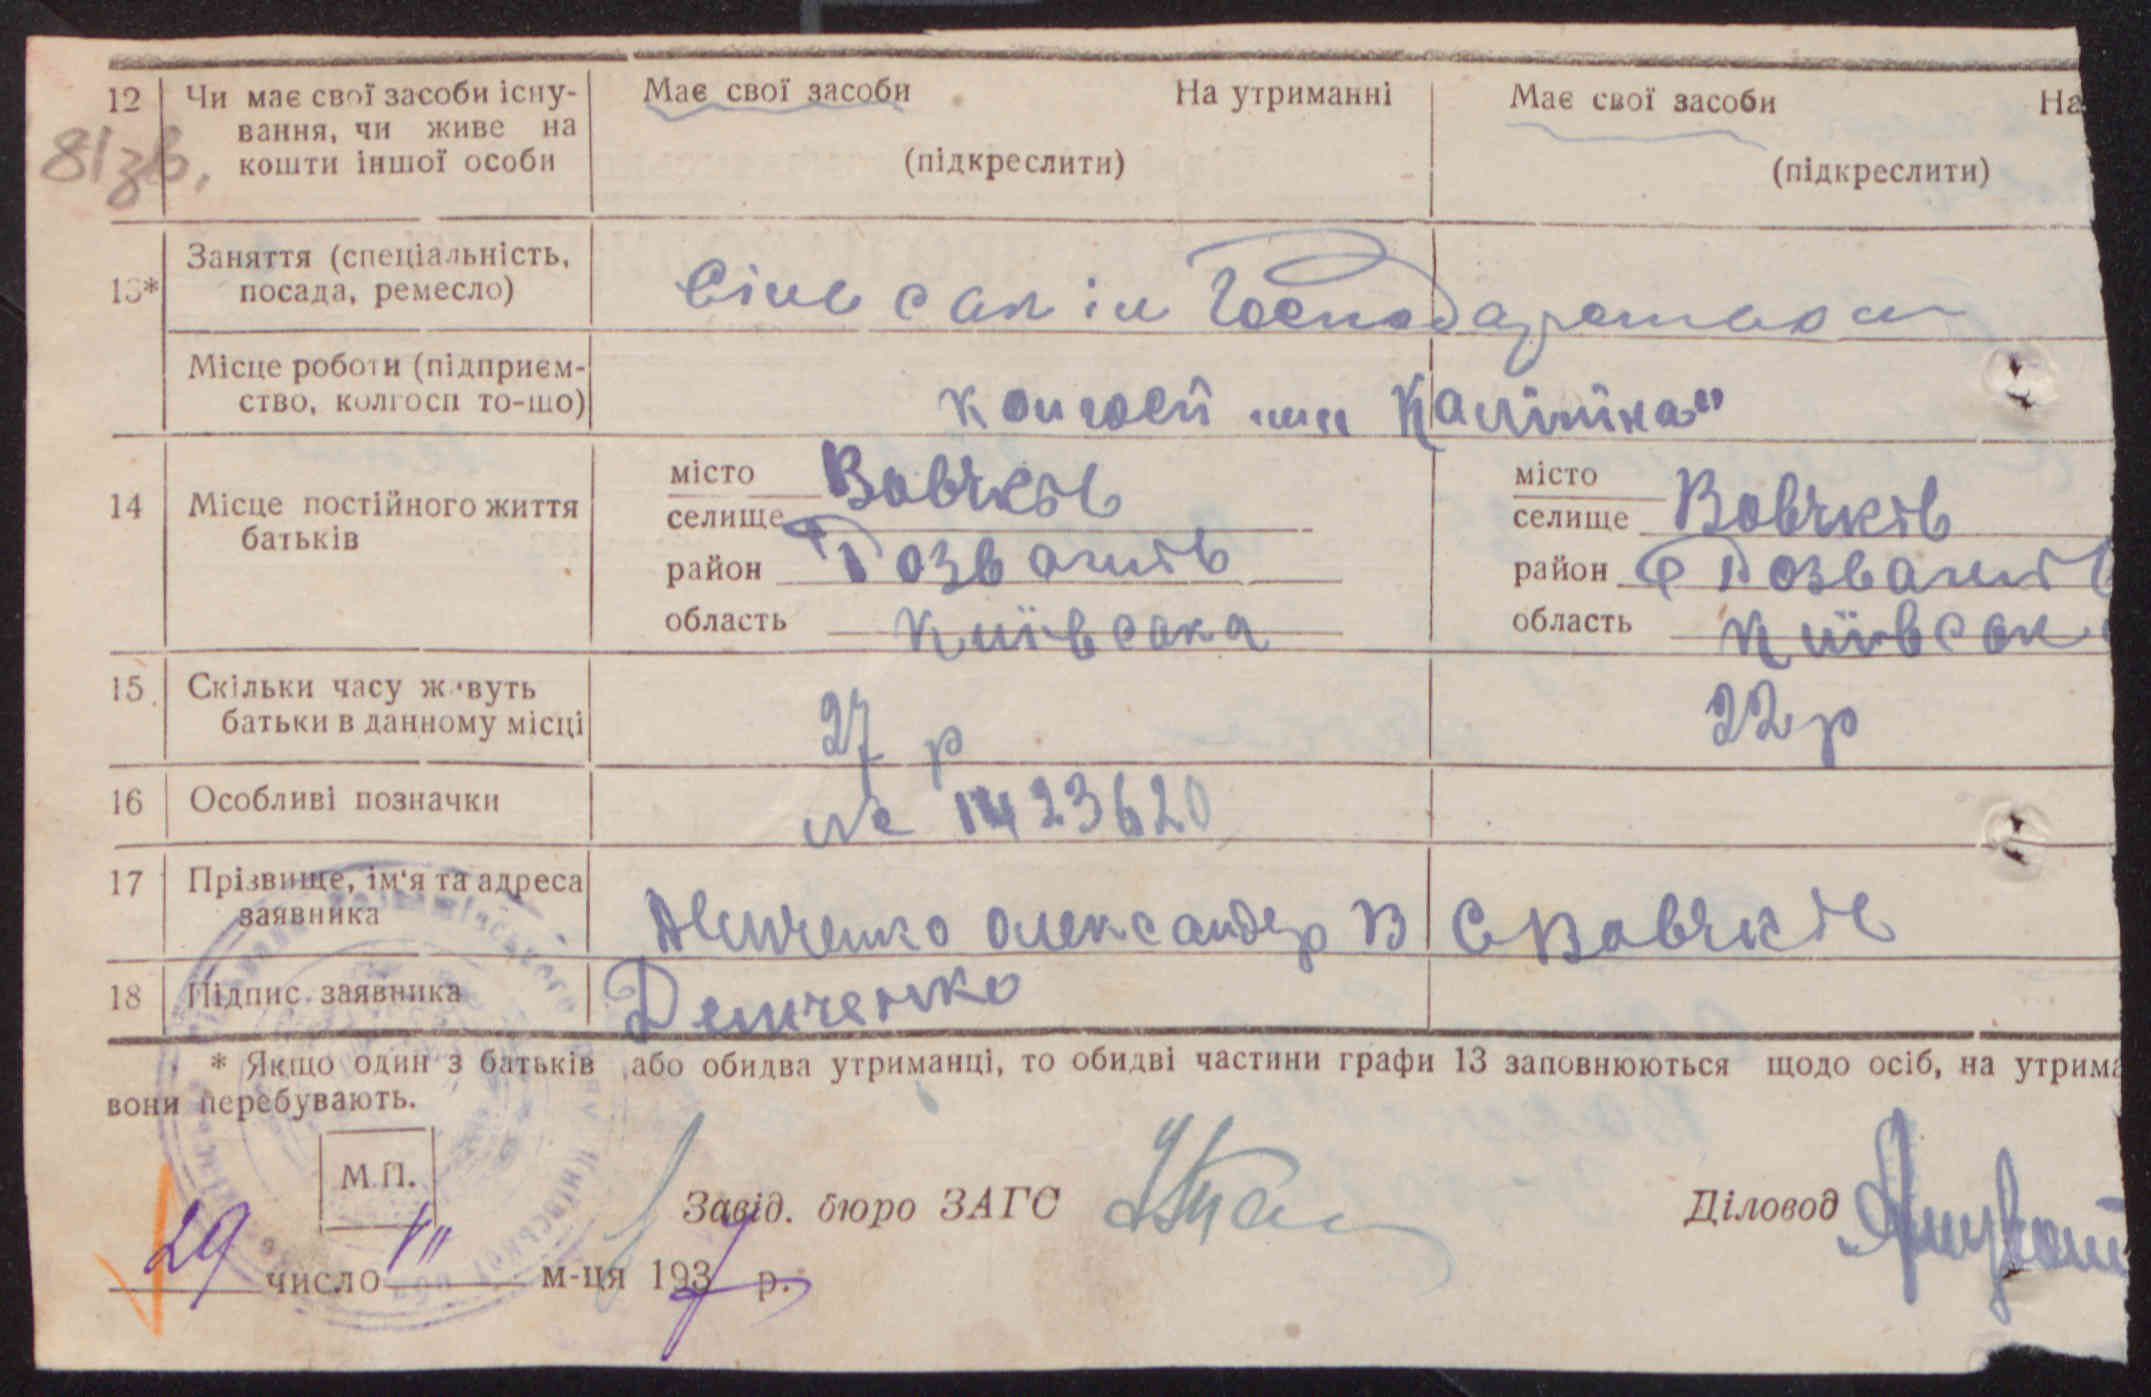 12 Чи має свої засоби існу- Має свої засоби На утриманні Має свої засоби На
вання, чи живе на
кошти іншої особи (підкреслити) (підкреслити)
81зв.
Заняття (спеціальність,
13* посада, ремесло) Сільсакім Господарством
Місце роботи (підприєм-
ство, колгосп то-що) колгосп им Калініна"
місто Вовчків місто Вовчків
14 Місце постійного життя селище селище
батьків
район Розважів район Розважів
область Київсака область Київсак
15 Скільки часу живуть 27 р 22 р
батьки в данному місці
16 Особливі позначки № 1423620
17 Прізвище, ім'я та адреса
заявника Демченко Олександер В С Вовчків
18 Підпис заявника Демченко
* Якщо один з батьків або обидва утриманці, то обидві частини графи 13 заповнюються щодо осіб, на утрима
вони перебувають.
М.П.
Завід. бюро ЗАГС Діловод
29 число VII м-ця 1937 р.